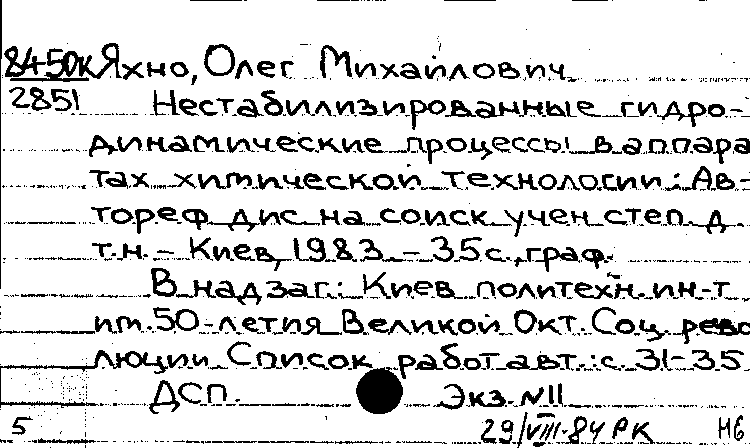 84-50к Яхно, Олег Михайлович
2851 Нестабилизированные гидро-
динамические процессы в аппара
тах химической технологии: Ав-
тореф дис на соиск учен степ. д
т.н. – Киев, 1983. – 35 с., граф.
В надзаг.: Киев политехн. ин-т
им. 50-летия Великой Окт. Соц. рево
люции Список работ авт.: с. 31-35
ДСП. Экз. N11
5 29/VIII-84 РК НБ